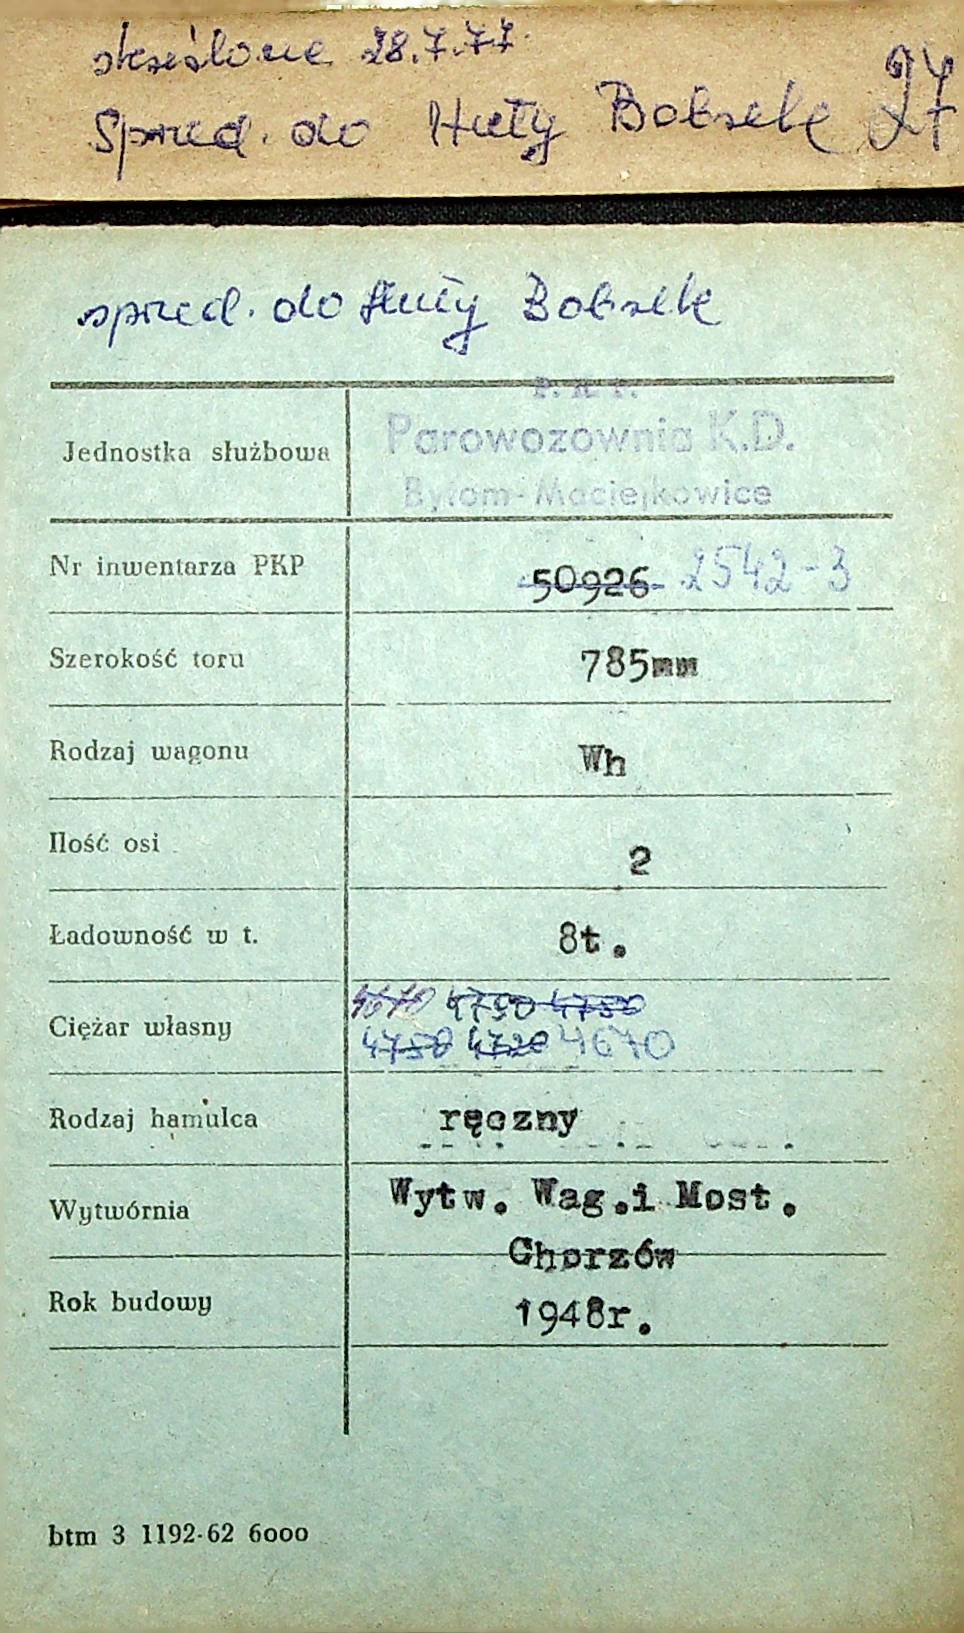 skreślone 28.7.77.
Sprzed. do Huty Bobrek 27
sprzed. do Huty Bobrek
P.K.P.
Jednostka służbowa Parowozownia K.D.
Bytom-Maciejkowice
Nr inwentarza PKP 50926 2542-3
Szerokość toru 785mm
Rodzaj wagonu Wh
Ilość osi 2
Ładowność w t. 8t.
4670 4750 4750
Ciężar własny 4750 4720 4670
Rodzaj hamulca ręczny
Wytwórnia Wytw. Wag.i Most.
Chorzów
Rok budowy 1948r.
btm 3 1192-62 6000